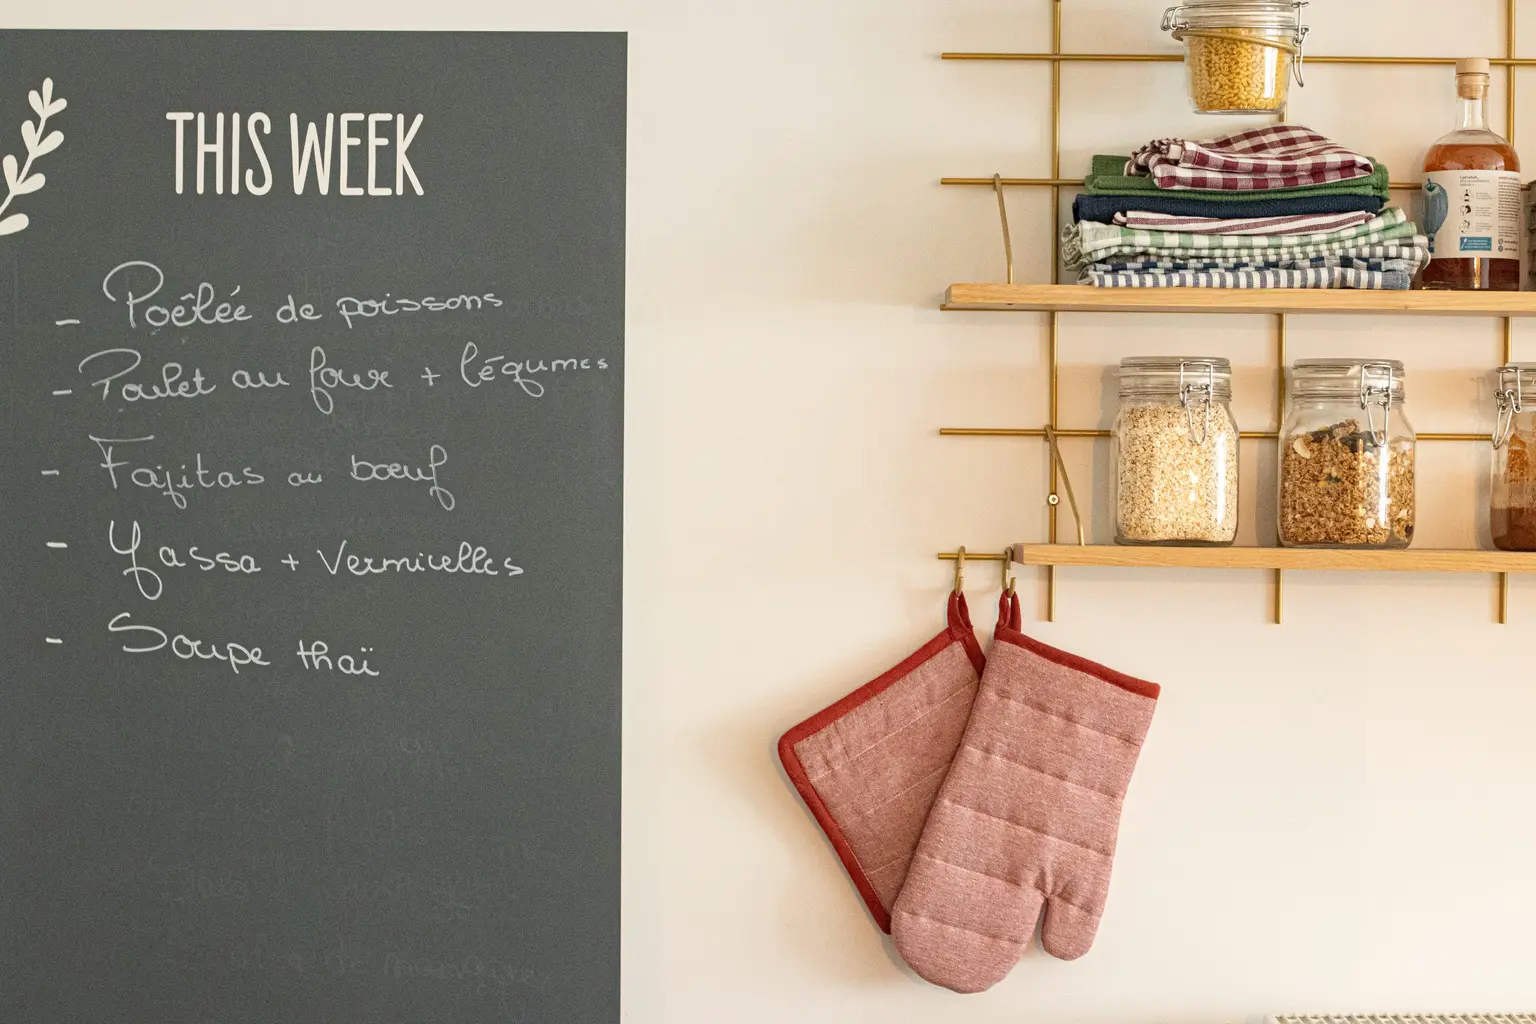 THIS WEEK
- Poêlée de poissons
- Poulet au four + légumes
- Fajitas au bœuf
- Yassa + Vermicelles
- Soupe thaï